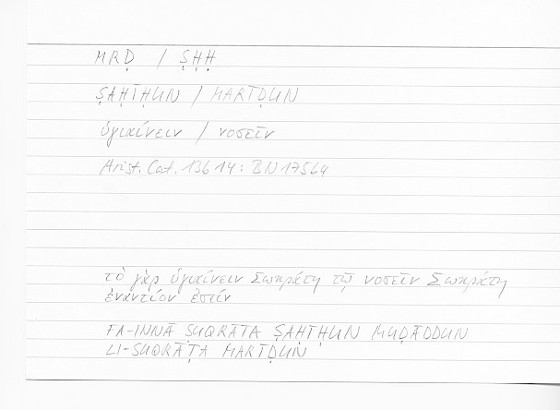 MRḌ / ṢḤḤ
ṢAḤĪḤUN / MARĪḌUN
ὑγιαίνειν / νοσεῖν
Arist. Cat. 13b14 : BN 175b4
τὸ γὰρ ὑγιαίνειν Σωκράτη τῷ νοσεῖν Σωκράτη
ἐναντίον ἐστίν
FA-INNA SUQRĀṬA ṢAḤĪḤUN MUḌĀDDUN
LI-SUQRĀṬA MARĪḌUN